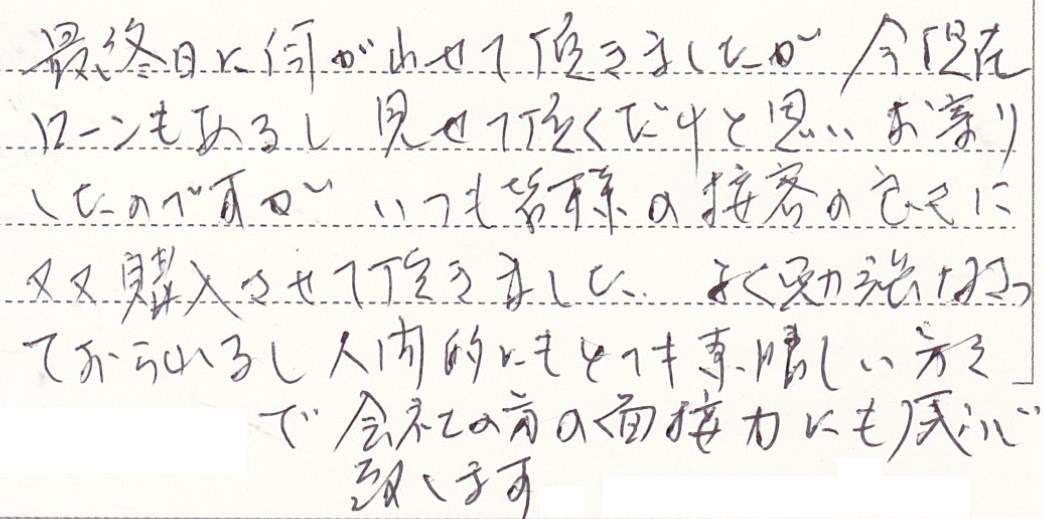 最終日に伺がわせて頂きましたが 今現在
ローンもあるし 見せて頂くだけと思い お寄り
したのですが いつも皆様の接客の良さに
又又購入させて頂きました よく勉強なさっ
ておられるし人間的にもとても素晴しい方々
で 会社の方の面接力にも感心
致します